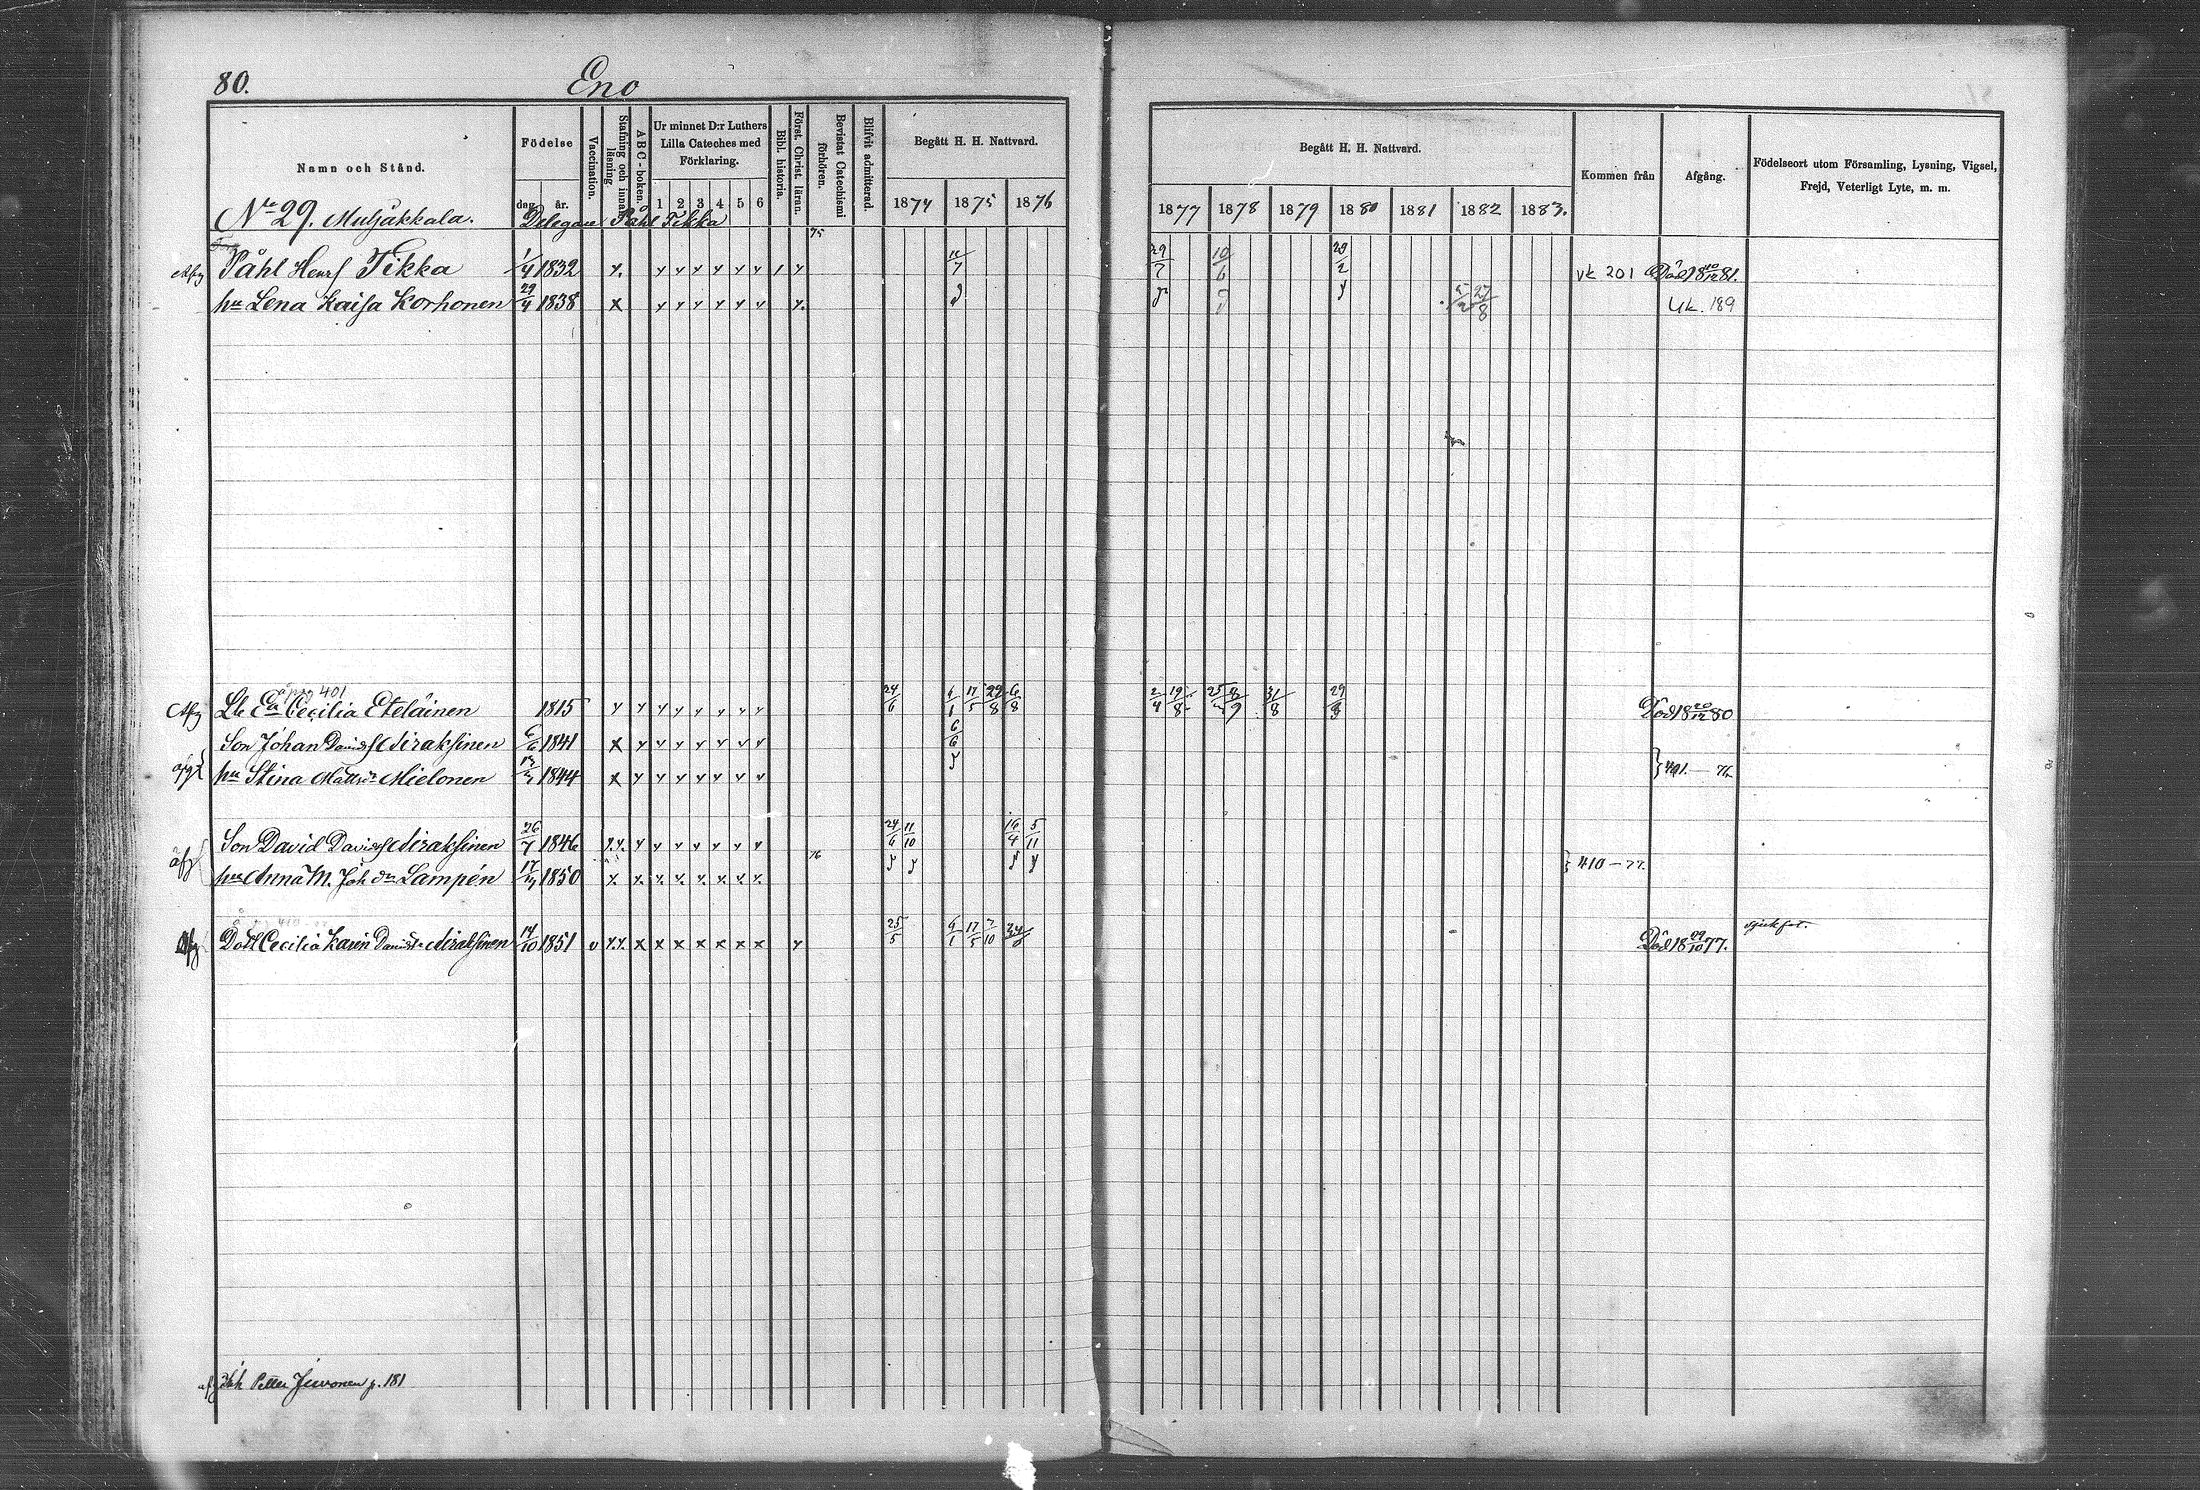 80. Eno
Namn och Stånd.
Födelse
dag år.
Vaccination.
Stafning och innanläsning
A B C-boken.
Ur minnet D:r Luthers Lilla Cateches med Förklaring.
1 2 3 4 5 6
Bibl. historia.
Först. Christ. läran.
Bevistat Catechismi förhören.
Blifvit admitterad.
Begått H. H. Nattvard.
1874 1875 1876
Begått H. H. Nattvard.
1877 1878 1879 1880 1881 1882 1883.
Kommen från
Afgång.
Födelseort utom Församling, Lysning, Vigsel, Frejd, Veterligt Lyte, m. m.
No 29. Mutjäkkala. Delegare Påhl Tikka
75
Afg Påhl Henrs Tikka 1/4 1832 7 29/7 10/6 29/2 vk 201 Död 18 10/12 81.
hu Lena Kaisa Korhonen 29/4 1838 27/8 Uk. 189
401
Afg Eva Cecilia Eteläinen 1815 24/6 6/1 17/5 29/8 6/8 2/4 19/8 25 8/9 31/8 29/3 Död 18 20/12 80
Son Johan Davids Airaksinen 6/6 1841 6/6
afg hu Stina Mattsdr Mielonen 1844 401. — 76
Son David Davids Airaksinen 26/7 1846 24/6 11/10 16/4 5/11
afg hu Anna M. Joh dr Lampén 17 1850 76 410 — 77.
Afg Dott Cecilia Karin Davidsdr Airaksinen 14/10 1851 v 25/5 6/1 17/5 7/10 Död 18 29/10 77.
Petter Juvonen p. 181